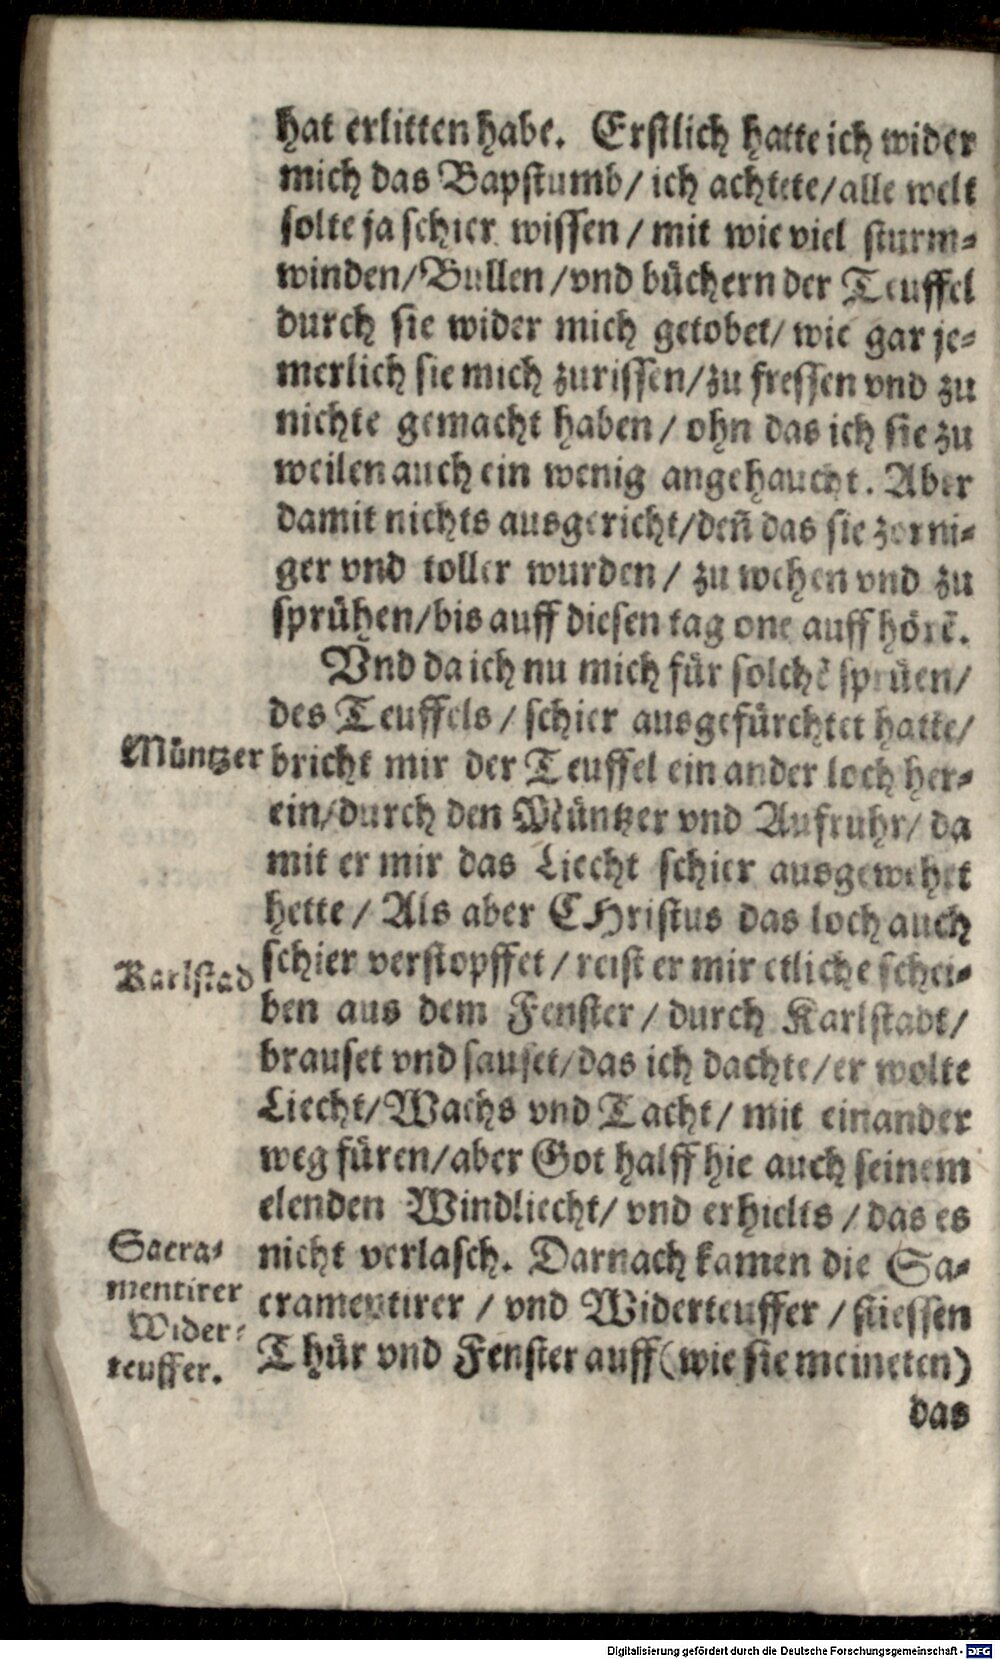 hat erlitten habe. Erstlich hatte ich wider
mich das Bapstumb/ ich achtete/ alle welt
solte ja schier wissen / mit wie viel sturm-
winden/ Bullen /vnd büchern der Teuffel
durch sie wider mich getobet/ wie gar je-
merlich sie mich zurissen/zu fressen vnd zu
nichte gemacht haben / ohn das ich sie zu
weilen auch ein wenig angehaucht. Aber
damit nichts ausgericht/deñ das sie zorni-
ger vnd toller wurden / zu wehen vnd zu
sprühen/bis auff diesen tag one auff hörē.
Vnd da ich nu mich für solchē sprüen/
des Teuffels / schier ausgefürchtet hatte/
Müntzer bricht mir der Teuffel ein ander loch her-
ein/durch den Müntzer vnd Aufruhr/ da
mit er mir das Liecht schier ausgewehet
hette / Als aber CHristus das loch auch
Karlstad schier verstopffet / reist er mir etliche schei-
ben aus dem Fenster / durch Karlstadt/
brauset vnd sauset/das ich dachte/er wolte
Liecht/Wachs vnd Tacht/ mit einander
weg füren/aber Got halff hie auch seinem
elenden Windliecht/ vnd erhielts / das es
Sacra- nicht verlasch. Darnach kamen die Sa-
mentirer cramentirer / vnd Widerteuffer / stiessen
Wider-
teuffer. Thür vnd Fenster auff (wie sie meineten)
das
Digitalisierung gefördert durch die Deutsche Forschungsgemeinschaft - DFG